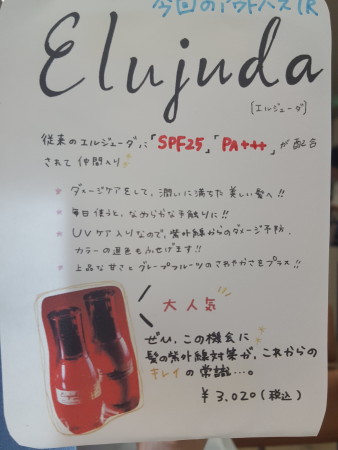 今回のアウトバスは
Elujuda
(エルジューダ)
従来のエルジューダに「SPF25」「PA+++」が配合
されて仲間入り
ダメージケアをして、潤いに満ちた美しい髪へ!!
毎日使うと、なめらかな手触りに!!
UVケア入りなので、紫外線からのダメージ予防、
カラーの退色もふせげます!!
上品な甘さとグレープフルーツのさわやかさをプラス!!
大人気
ぜひ、この機会に
髪の紫外線対策が、これからの
キレイの常識…。
¥3,020(税込)